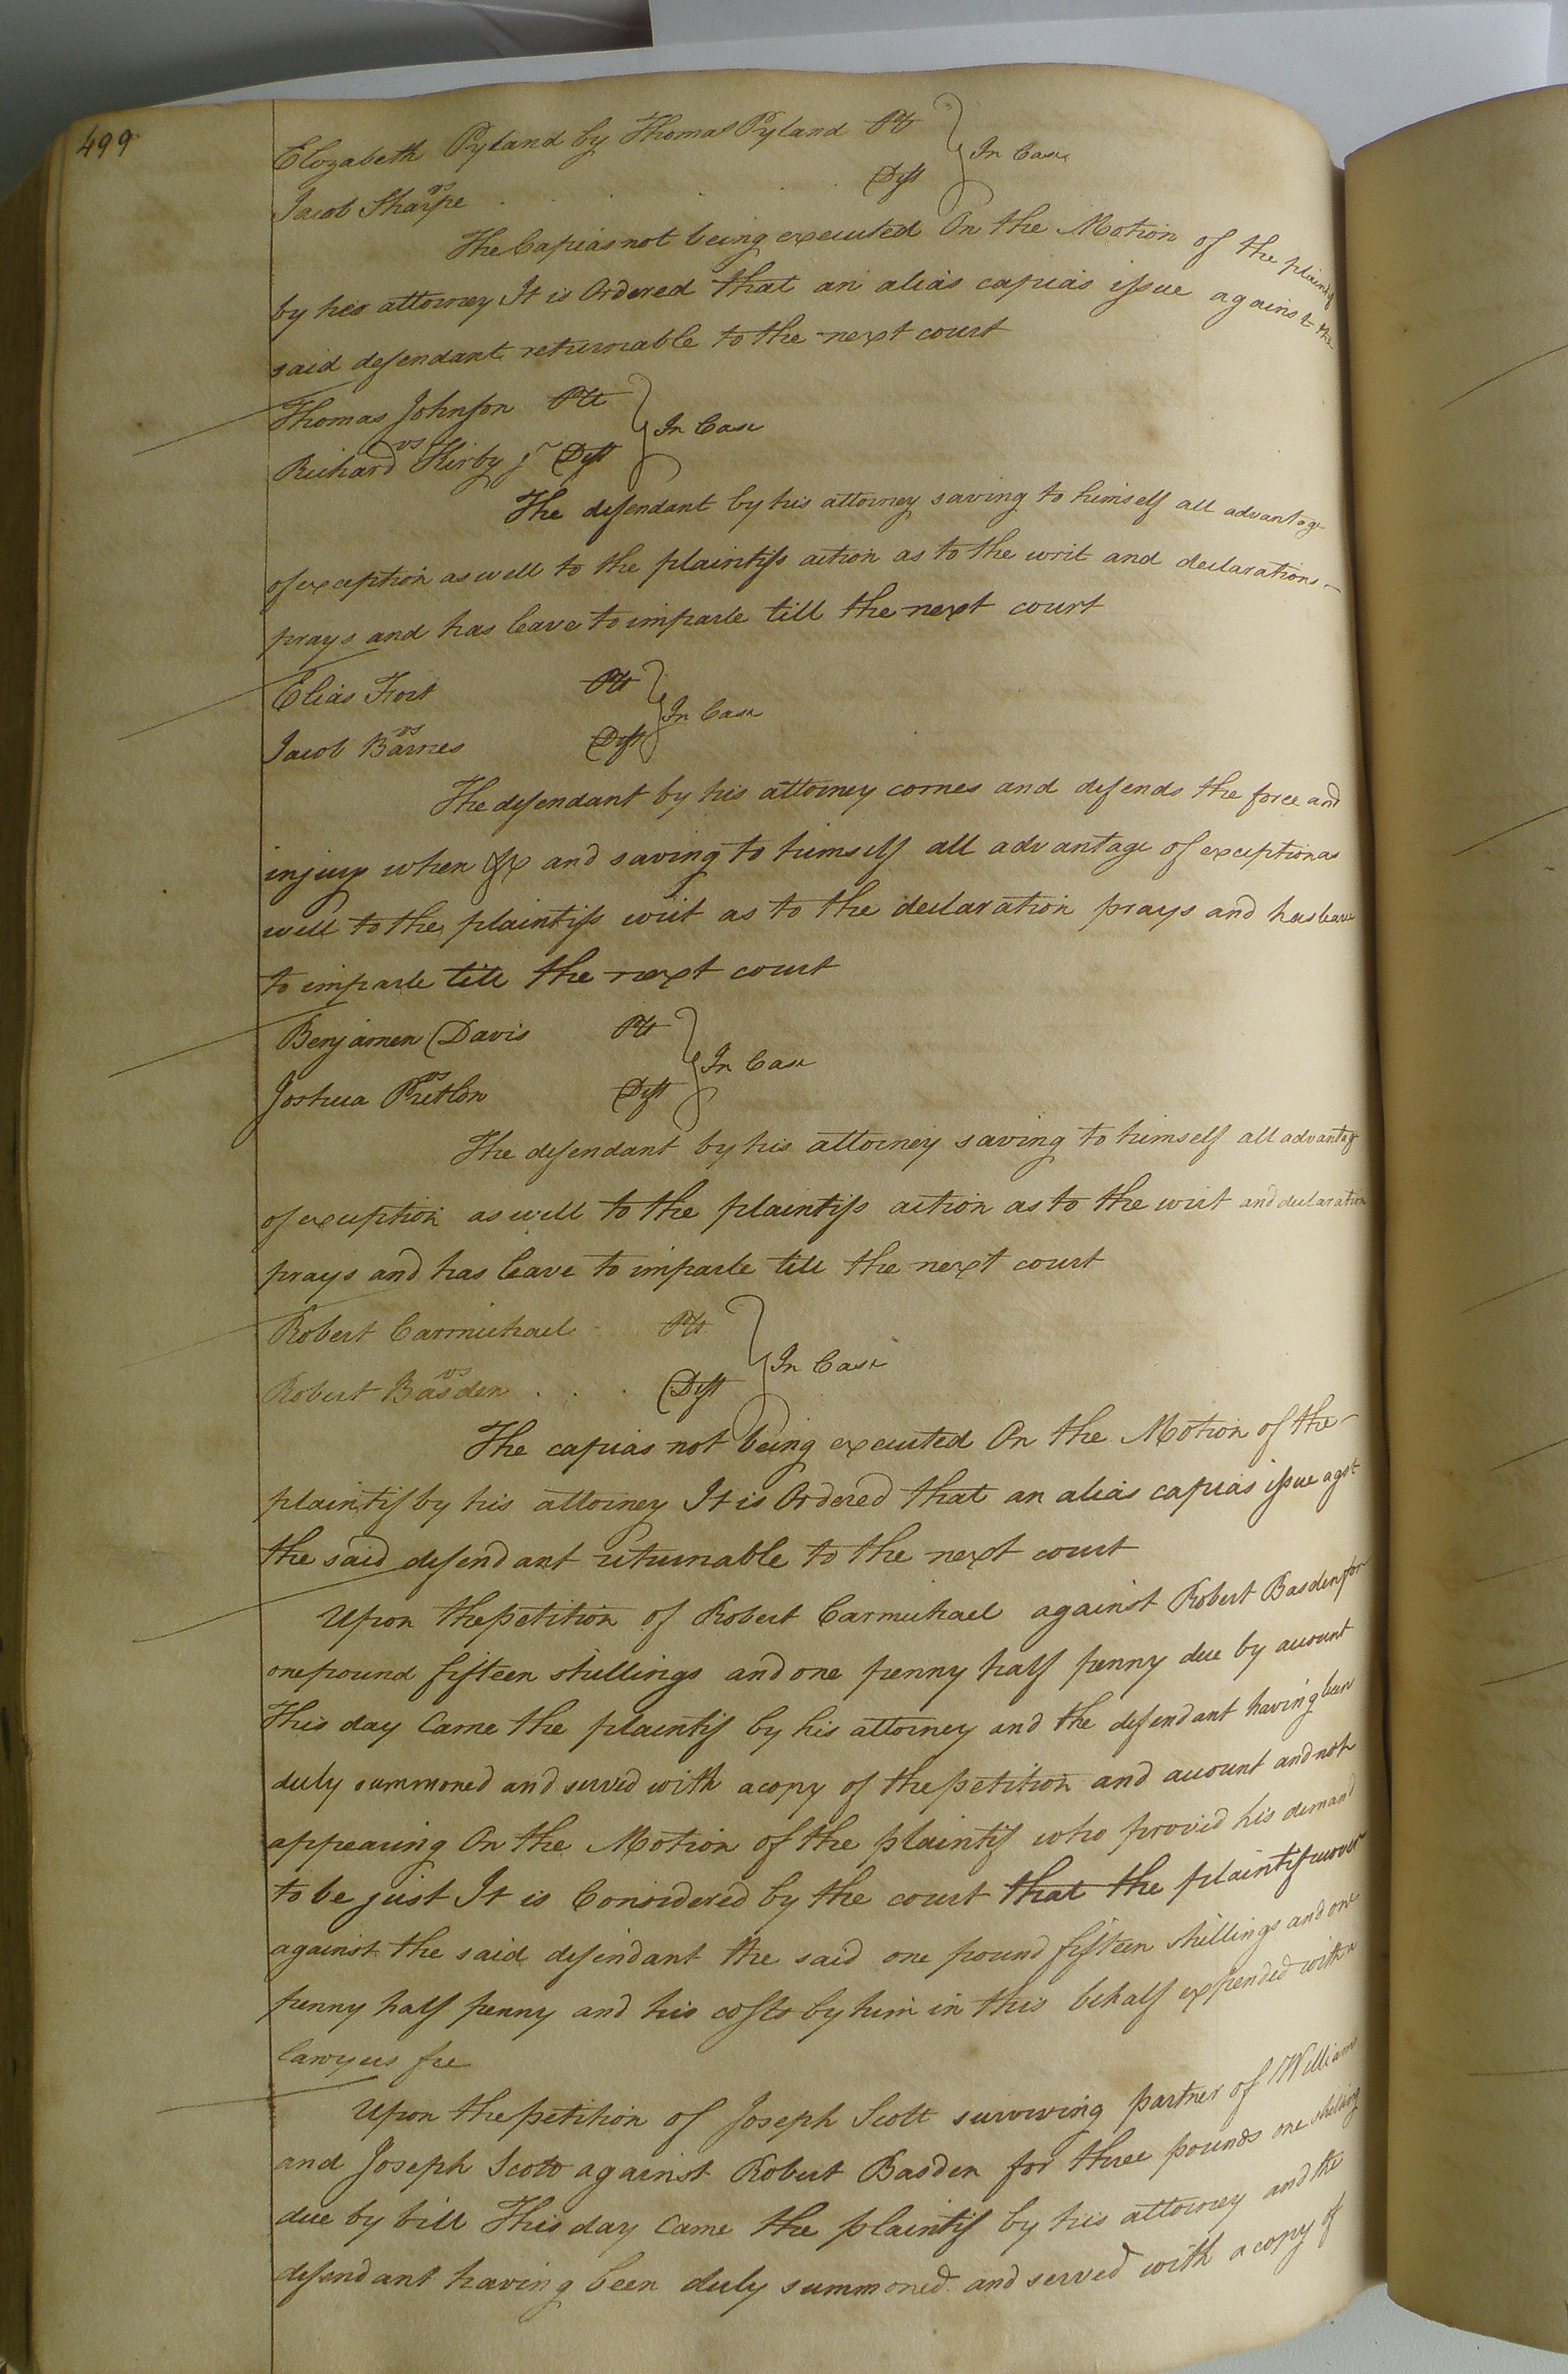 499
Elizabeth Pyland by Thomas Pyland Plt
vs } In Case
Jacob Sharpe . . . . Dft
The Capias not being executed On the Motion of the plaintif
by his attorney It is Ordered that an alias capias issue against the
said defendant returnable to the next court
Thomas Johnson Plt
vs } In Case
Richard Kirby jr Dft
The defendant by his attorney saving to himself all advantage
of exception as well to the plaintifs action as to the writ and declarations
prays and has leave to imparle till the next court
Elias Fort Plt
vs } In Case
Jacob Barnes Dft
The defendant by his attorney comes and defends the force and
injury when &c and saving to himself all advantage of exception as
well to the plaintifs writ as to the declaration prays and has leave
to imparle till the next court
Benjamen Davis Plt
vs } In Case
Joshua Pretlow Dft
The defendant by his attorney saving to himself all advantage
of exception as well to the plaintifs action as to the writ and declaration
prays and has leave to imparle till the next court
Robert Carmichael Plt
vs } In Case
Robert Basden . . . Dft
The capias not being executed On the Motion of the
plaintif by his attorney It is Ordered that an alias capias issue agst
the said defendant returnable to the next court
Upon the petition of Robert Carmichael against Robert Basden for
one pound fifteen shillings and one penny half penny due by account
This day Came the plaintif by his attorney and the defendant having been
duly summoned and served with a copy of the petition and account and not
appearing On the Motion of the plaintif who proved his demand
to be just It is Considered by the court that the plaintif recover
against the said defendant the said one pound fifteen shillings and one
penny half penny and his costs by him in this behalf expended with a
lawyers fee
Upon the petition of Joseph Scott surviving partner of William
and Joseph Scott against Robert Basden for three pounds one shilling
due by bill This day Came the plaintif by his attorney and the
defendant having been duly summoned and served with a copy of